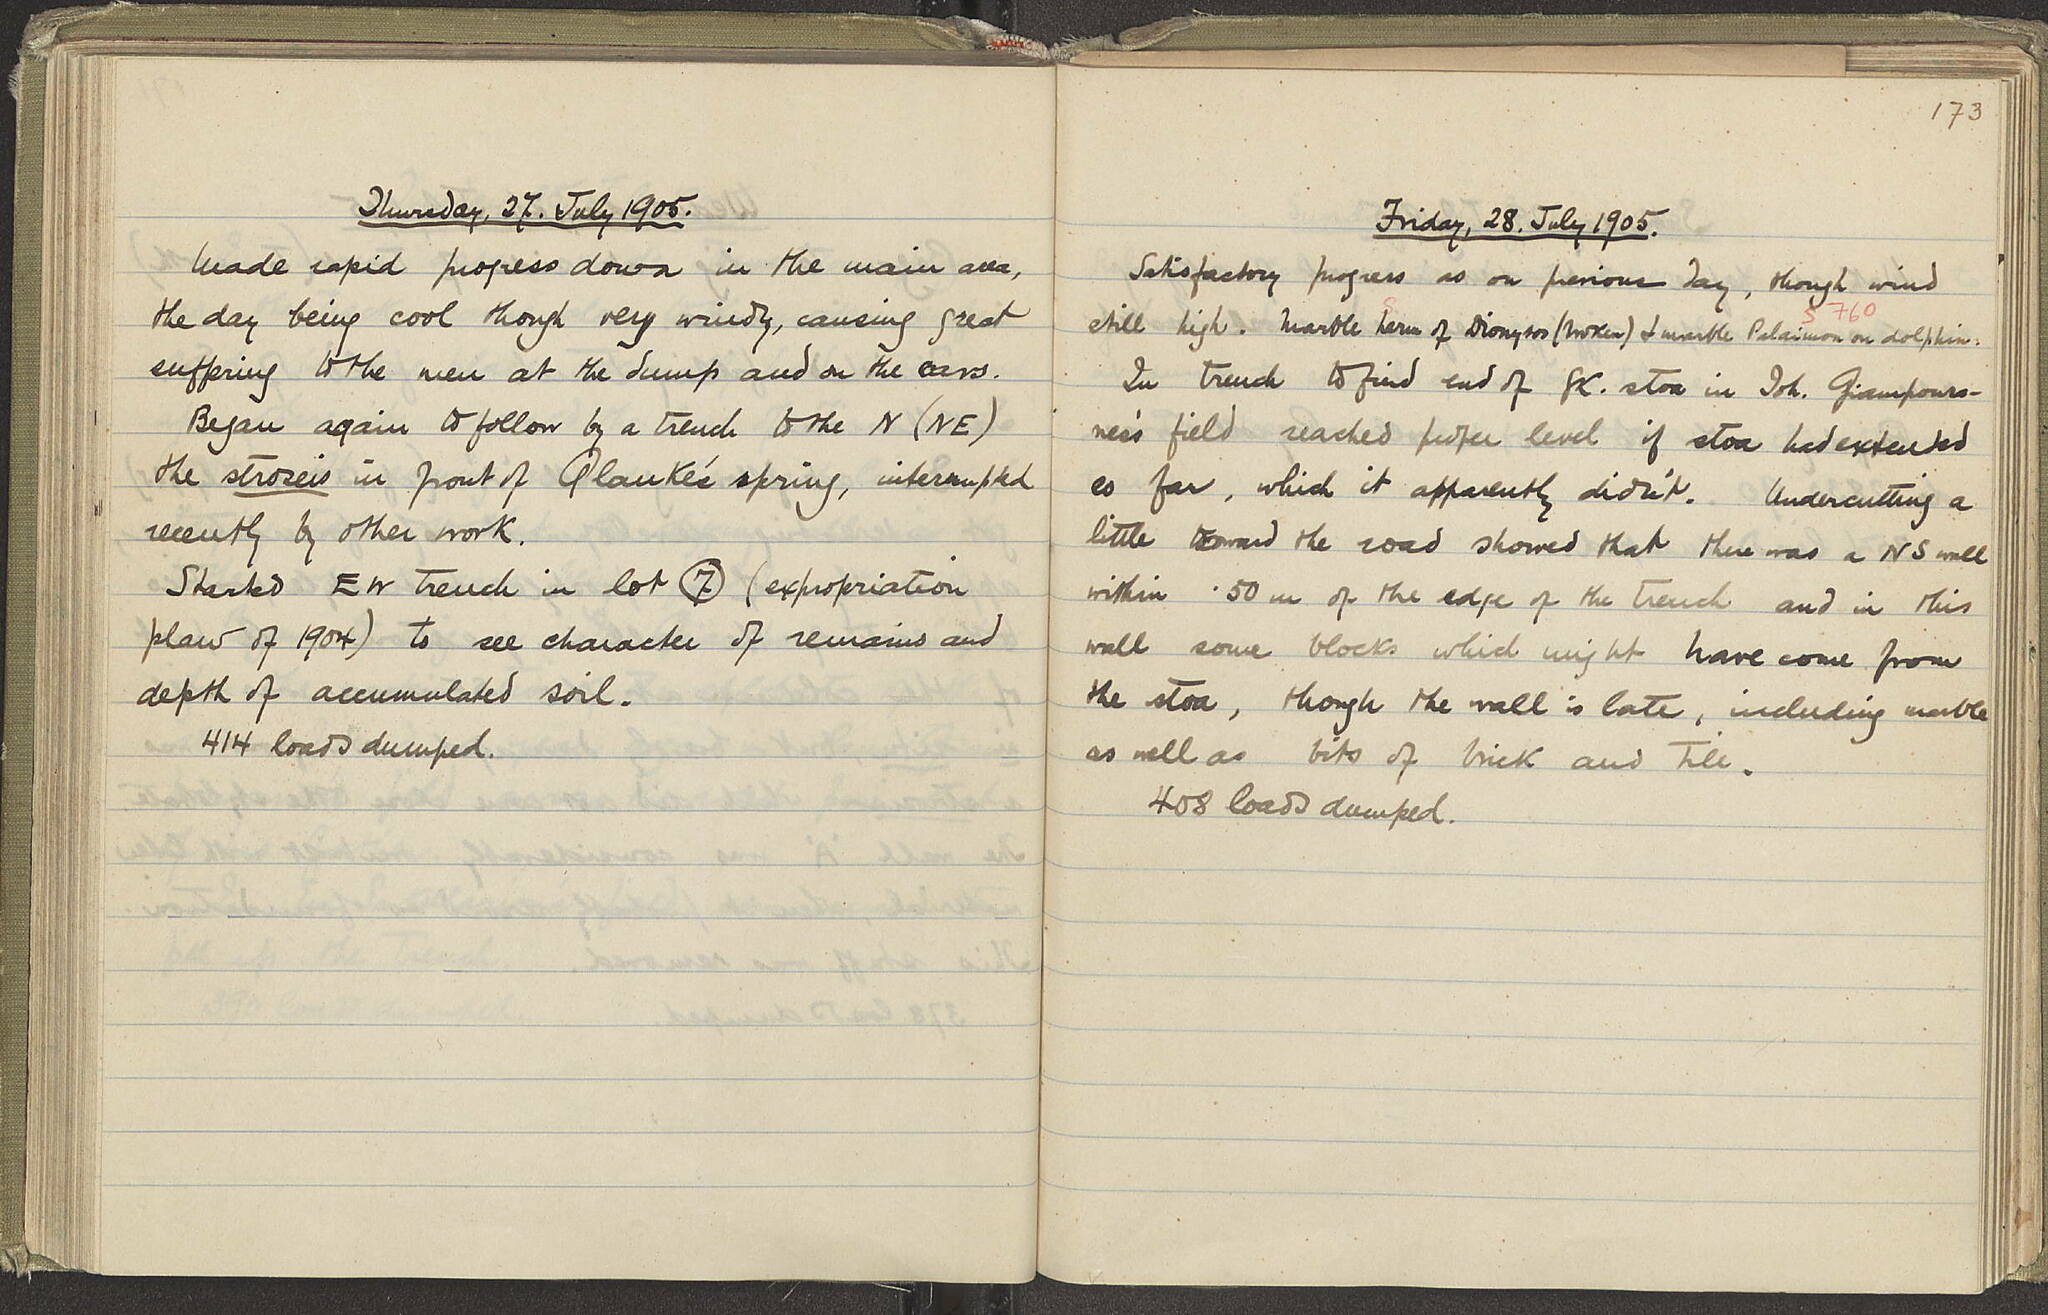 Thursday, 27. July 1905.
Made rapid progress down in the main area,
the day being cool though very windy, causing great
suffering to the men at the dump and on the cars.
Began again to follow by a trench to the N (NE)
the stroseis in front of Glauke's spring, interrupted
recently by other work.
Started EW trench in lot 7 (expropriation
plan of 1904) to see character of remains and
depth of accumulated soil.
414 loads dumped.
173
Friday, 28. July 1905.
Satisfactory progress as on previous day, though wind
S 760
still high. Marble herm of Dionysos (broken) & marble Palaimon on dolphin.
In trench to find end of GK. stoa in Joh. Giampour-
nes's field reached proper level if stoa had extended
so far, which it apparently didn't. Undercutting a
little toward the road showed that there was a NS wall
within .50 m of the edge of the trench and in this
wall some blocks which might have come from
the stoa, though the wall is late, including marble
as well as bits of brick and tile.
408 loads dumped.